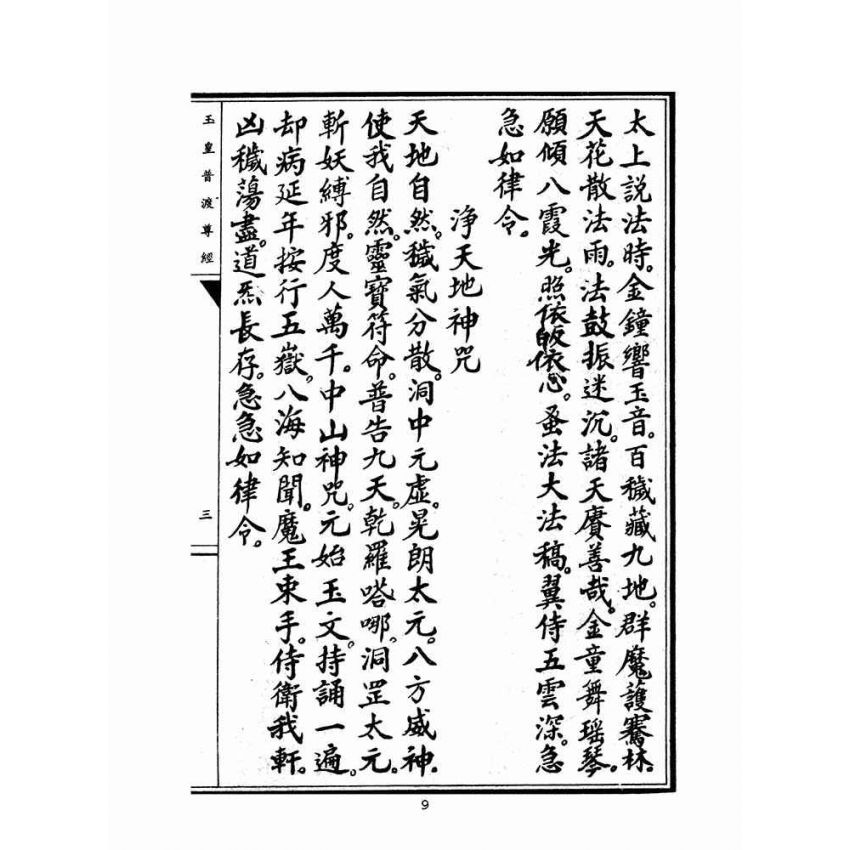 太上説法時。金鐘響玉音。百穢藏九地。群魔護騫林。
天花散法雨。法鼓振迷沉。諸天賡善哉。金童舞瑶琴。
願傾八霞光。照依皈依心。蚤法大法稿。翼侍五雲深。急
急如律令。
淨天地神咒
天地自然。穢氣分散。洞中元虛。晃朗太元。八方威神。
使我自然。靈寶符命。普告九天。乾羅嗒哪。洞罡太元。
斬妖縛邪。度人萬千。中山神咒。元始玉文。持誦一遍。
却病延年。按行五嶽。八海知聞。魔王束手。侍衛我軒。
凶穢蕩盡。道炁長存。急急如律令。
玉皇普渡尊經
三
9